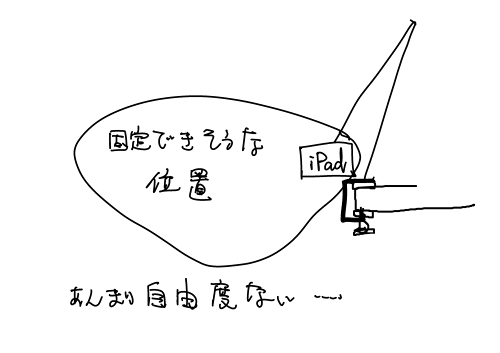 固定できそうな
位置
iPad
あんまり自由度ない……